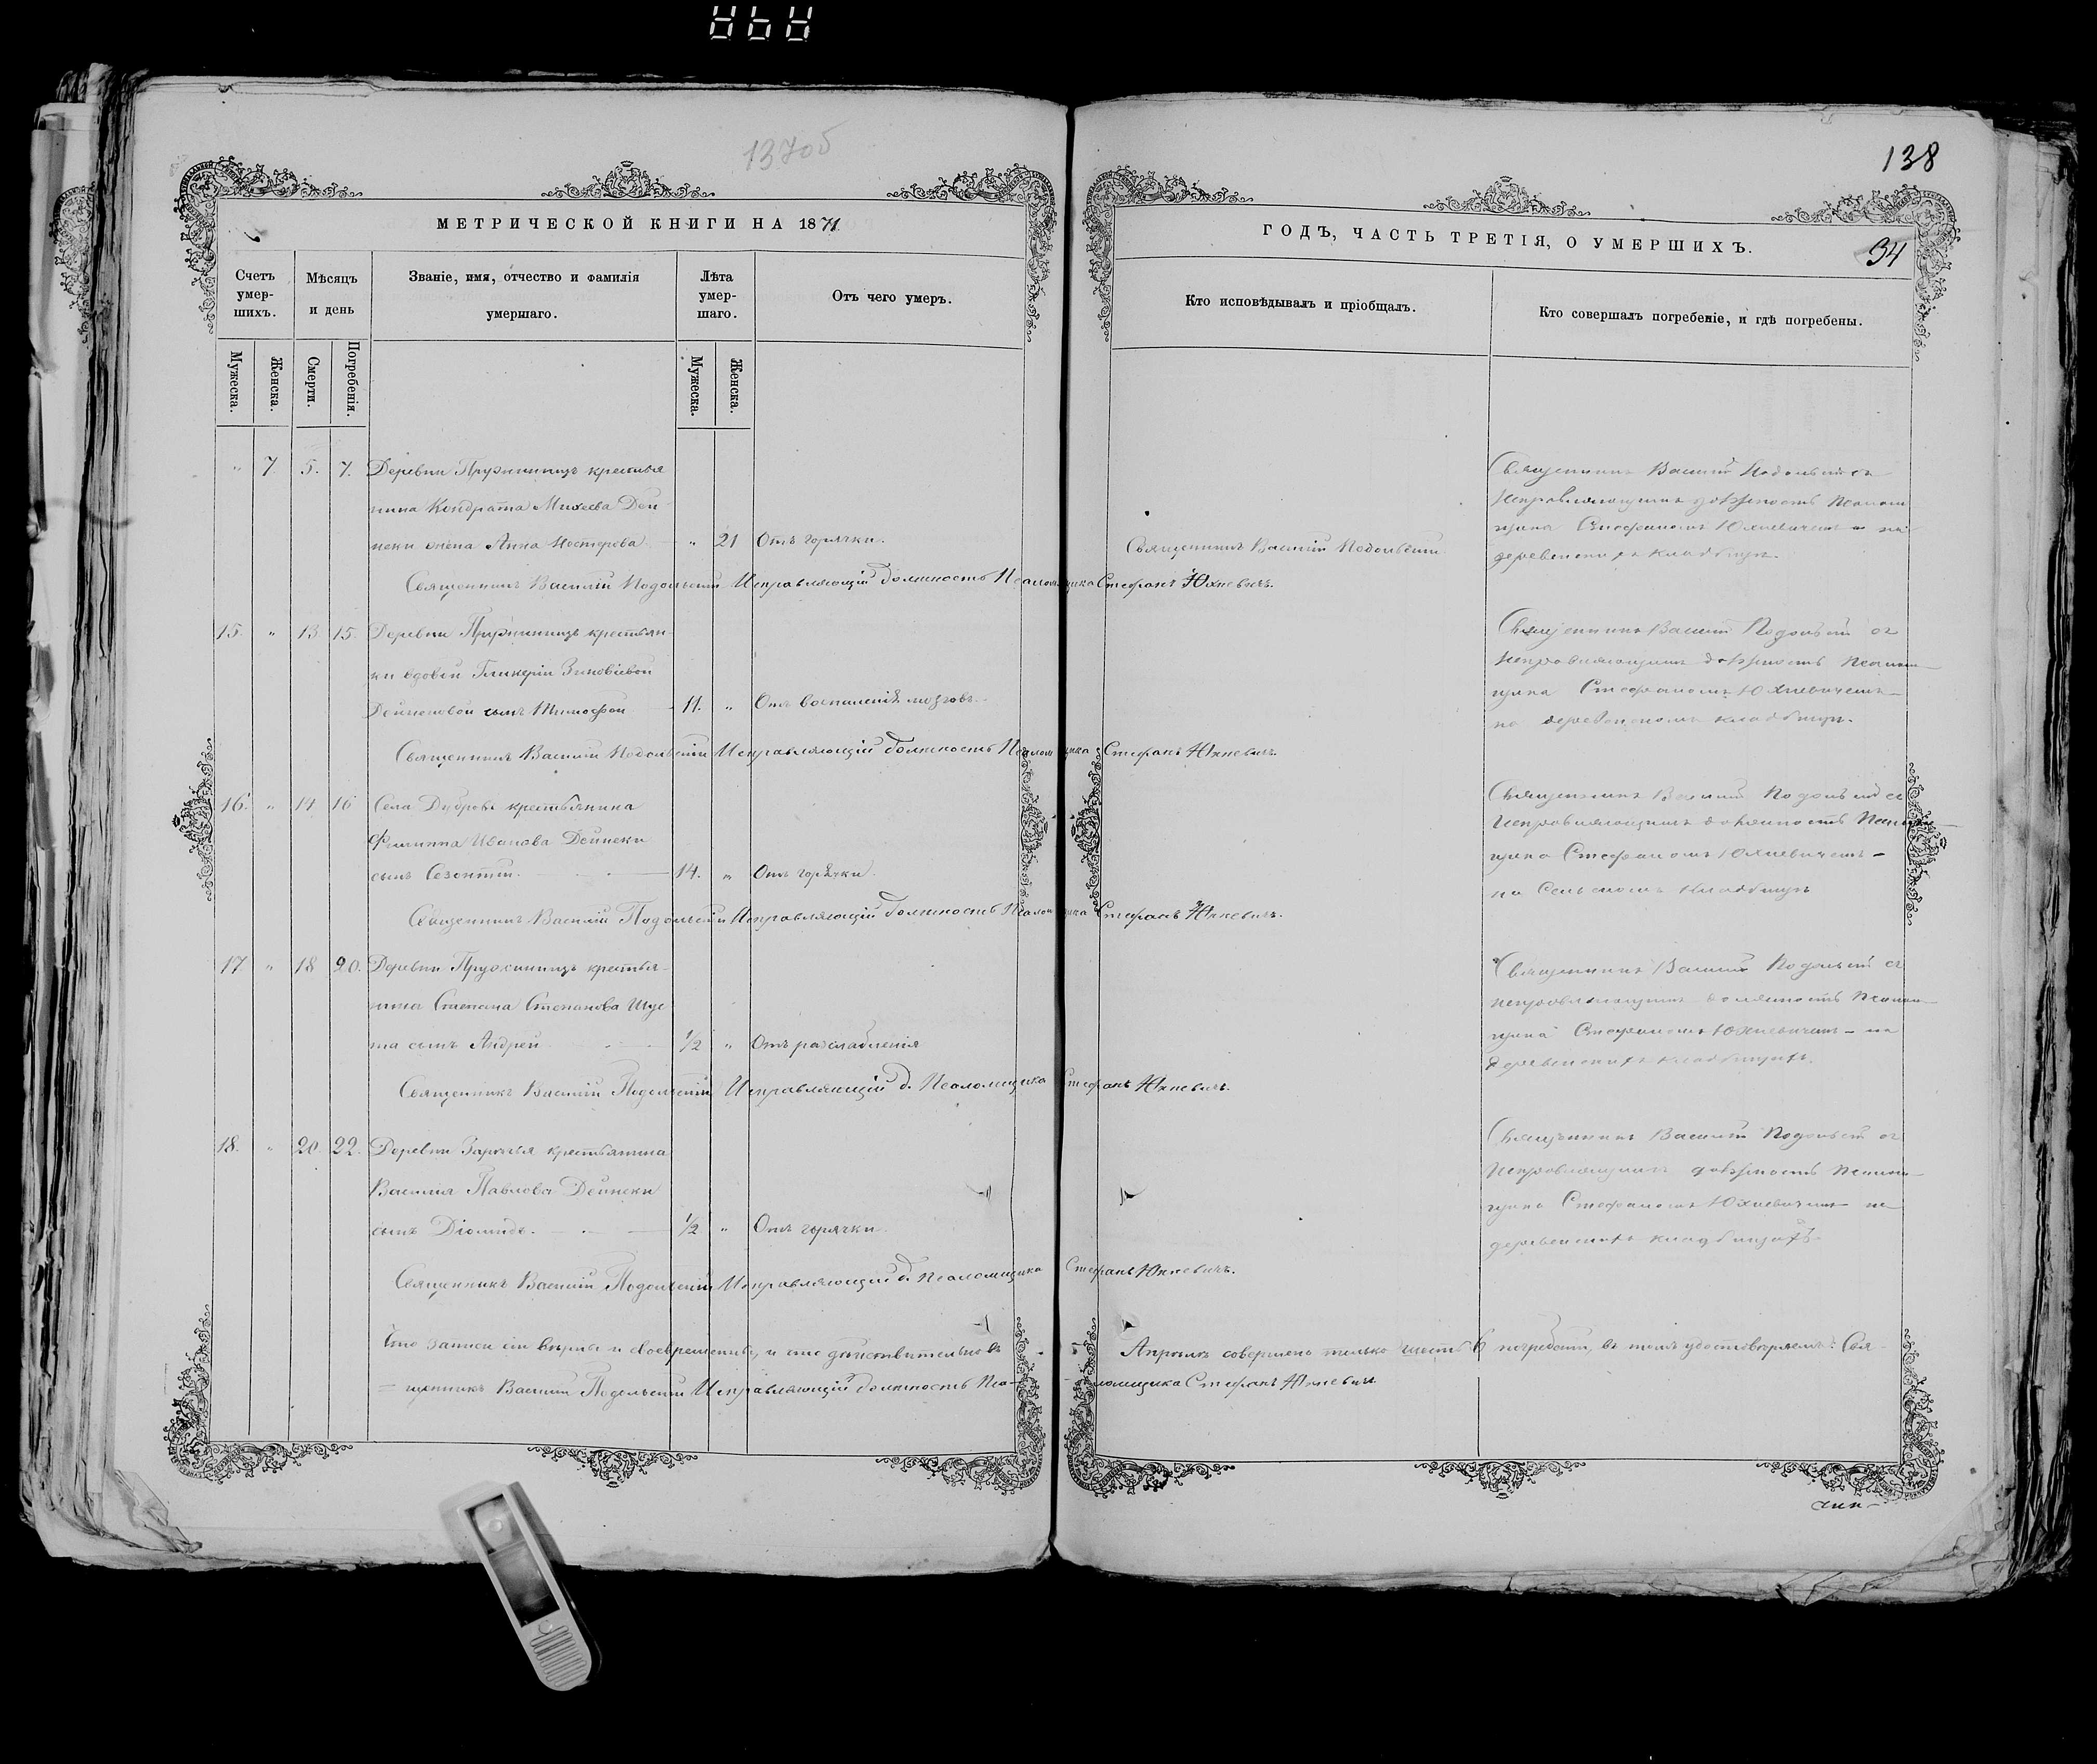 137об
138
МЕТРИЧЕСКОЙ КНИГИ НА 1871
ГОДЪ, ЧАСТЬ ТРЕТІЯ, О УМЕРШИХЪ.
34
Счетъ умер-шихъ.
Мѣсяцъ и день
Званіе, имя, отчество и фамилія умершаго.
Лѣта умер-шаго.
Отъ чего умеръ.
Кто исповѣдывалъ и пріобщалъ.
Кто совершалъ погребеніе, и гдѣ погребены.
Мужеска.
Женска.
Смерти.
Погребенія.
Мужеска.
Женска.
" 7 5. 7. Деревни Пружиницъ крестья
нина Кондрата Михеева Дей
неки жена Анна Нестерова " 21 Отъ горячки.
Священникъ Василій Подольскій
Священникъ Василій Подольскій съ
исправляющимъ должность Псалом
щика Стефаномъ Юхневичемъ на
деревенскомъ кладбищѣ.
Священникъ Василій Подольскій Исправляющій должность Псаломщика Стефанъ Юхневичъ.
15. " 13 15. Деревни Пружиницъ крестьян
ки вдовы Гликеріи Зиновіевой
Дейнековой сынъ Тимофей 11. " Отъ воспаленія мозговъ.
Священникъ Василій Подольскій съ
исправляющимъ должность Псалом
щика Стефаномъ Юхневичемъ
на деревенскомъ кладбищѣ.
Священникъ Василій Подольскій Исправляющій должность Псаломщика Стефанъ Юхневичъ.
16. " 14 16 Села Дубровы крестьянина
Филиппа Иванова Дейнеки
сынъ Созонтій. 14. " Отъ горячки.
Священникъ Василій Подольскій съ
Исправляющимъ должность Псалом
щика Стефаномъ Юхневичемъ
на Сельскомъ кладбищѣ
Священникъ Василій Подольскій Исправляющій должность Псаломщика Стефанъ Юхневичъ.
17 " 18 20. Деревни Пружиницъ крестья
нина Степана Степанова Шус
та сынъ Андрей 1/2 " Отъ разслабленія
Священникъ Василій Подольскій съ
исправляющимъ должность Псалом
щика Стефаномъ Юхневичемъ на
деревенскомъ кладбищѣ.
Священникъ Василій Подольскій Исправляющій д. Псаломщика Стефанъ Юхневичъ.
18. " 20 22. Деревни Зарѣчья крестьянина
Василія Павлова Дейнеки
сынъ Діомидъ. 1/2 " Отъ горячки.
Священникъ Василій Подольскій съ
Исправляющимъ должность Псалом
щика Стефаномъ Юхневичемъ на
деревенскомъ кладбищѣ.
Священникъ Василій Подольскій Исправляющій д. Псаломщика Стефанъ Юхневичъ.
Что записи сіи вѣрны и своевременны, и что дѣйствительно въ Апрѣлѣ совершено только шесть 6 погребеній, въ томъ удостовѣряемъ: Свя
щенникъ Василій Подольскій Исправляющій должность Псаломщика Стефанъ Юхневичъ